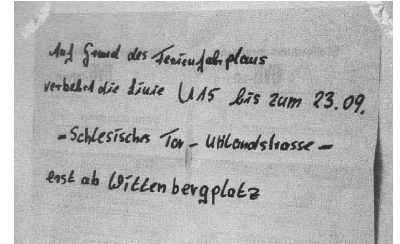 Auf Grund des Ferienfahrplans
verkehrt die Linie U15 bis zum 23.09.
- Schlesisches Tor - Uhlandstrasse -
erst ab Wittenbergplatz